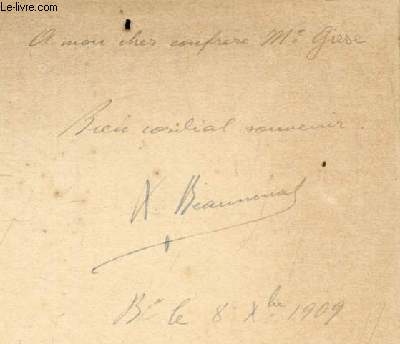 Le-Livre.com
A mon cher confrere Mr Giese
Bien cordial souvenir.
X Beaumenal
Bx le 8 Xbre 1909